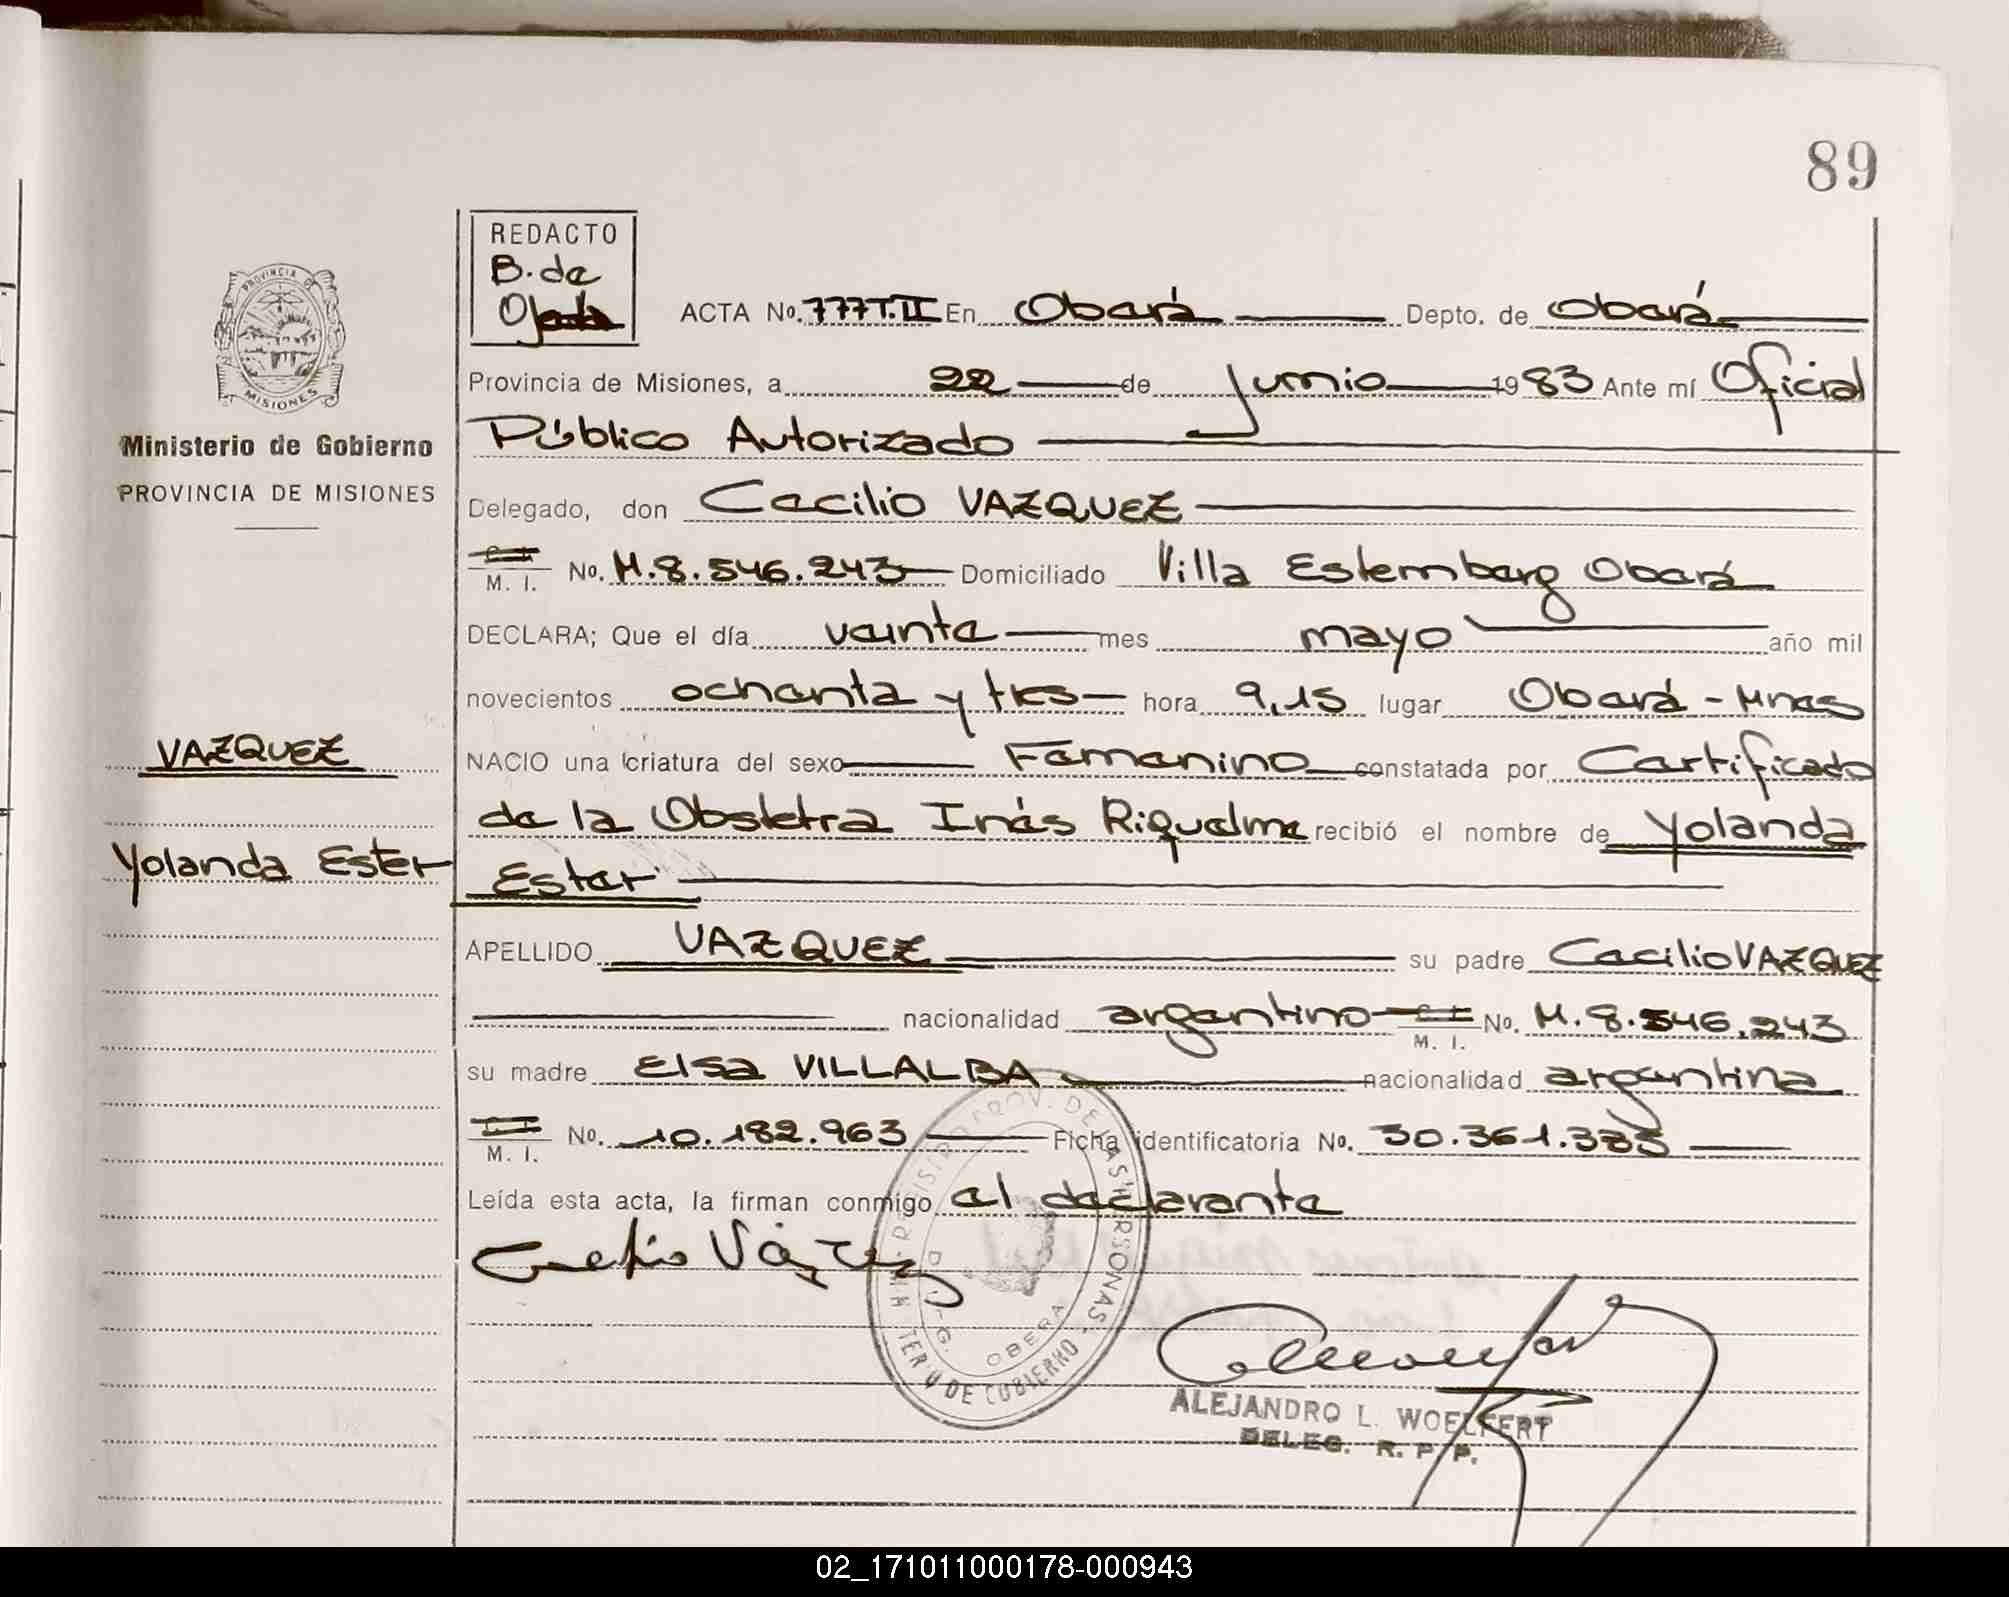 89
REDACTO
B. de
Ojeda
PROVINCIA DE
MISIONES
Ministerio de Gobierno
PROVINCIA DE MISIONES
ACTA No. 777 T. II En Oberá Depto. de Oberá
Provincia de Misiones, a 22 de Junio 1983 Ante mí Oficial
Público Autorizado
Delegado, don Cecilio VAZQUEZ
M. I. No. M. 8.546.243 Domiciliado Villa Estemberg Oberá
DECLARA; Que el día veinte mes mayo año mil
novecientos ochenta y tres hora 9,15 lugar Oberá - Mnes
VAZQUEZ
NACIO una criatura del sexo Femenino constatada por Certificado
de la Obstetra Inés Riquelme recibió el nombre de Yolanda
Yolanda Ester
Ester
APELLIDO VAZQUEZ su padre Cecilio VAZQUEZ
nacionalidad argentino M. I. No. M. 8.546.243
su madre Elsa VILLALBA nacionalidad argentina
M. I. No. 10.182.963 Ficha identificatoria No. 30.361.385
Leída esta acta, la firman conmigo el declarante
PROV. DE LAS PERSONAS
OBERA
MINISTERIO DE GOBIERNO
ALEJANDRO L. WOELFERT
DELEG. R. P. P.
02_171011000178-000943